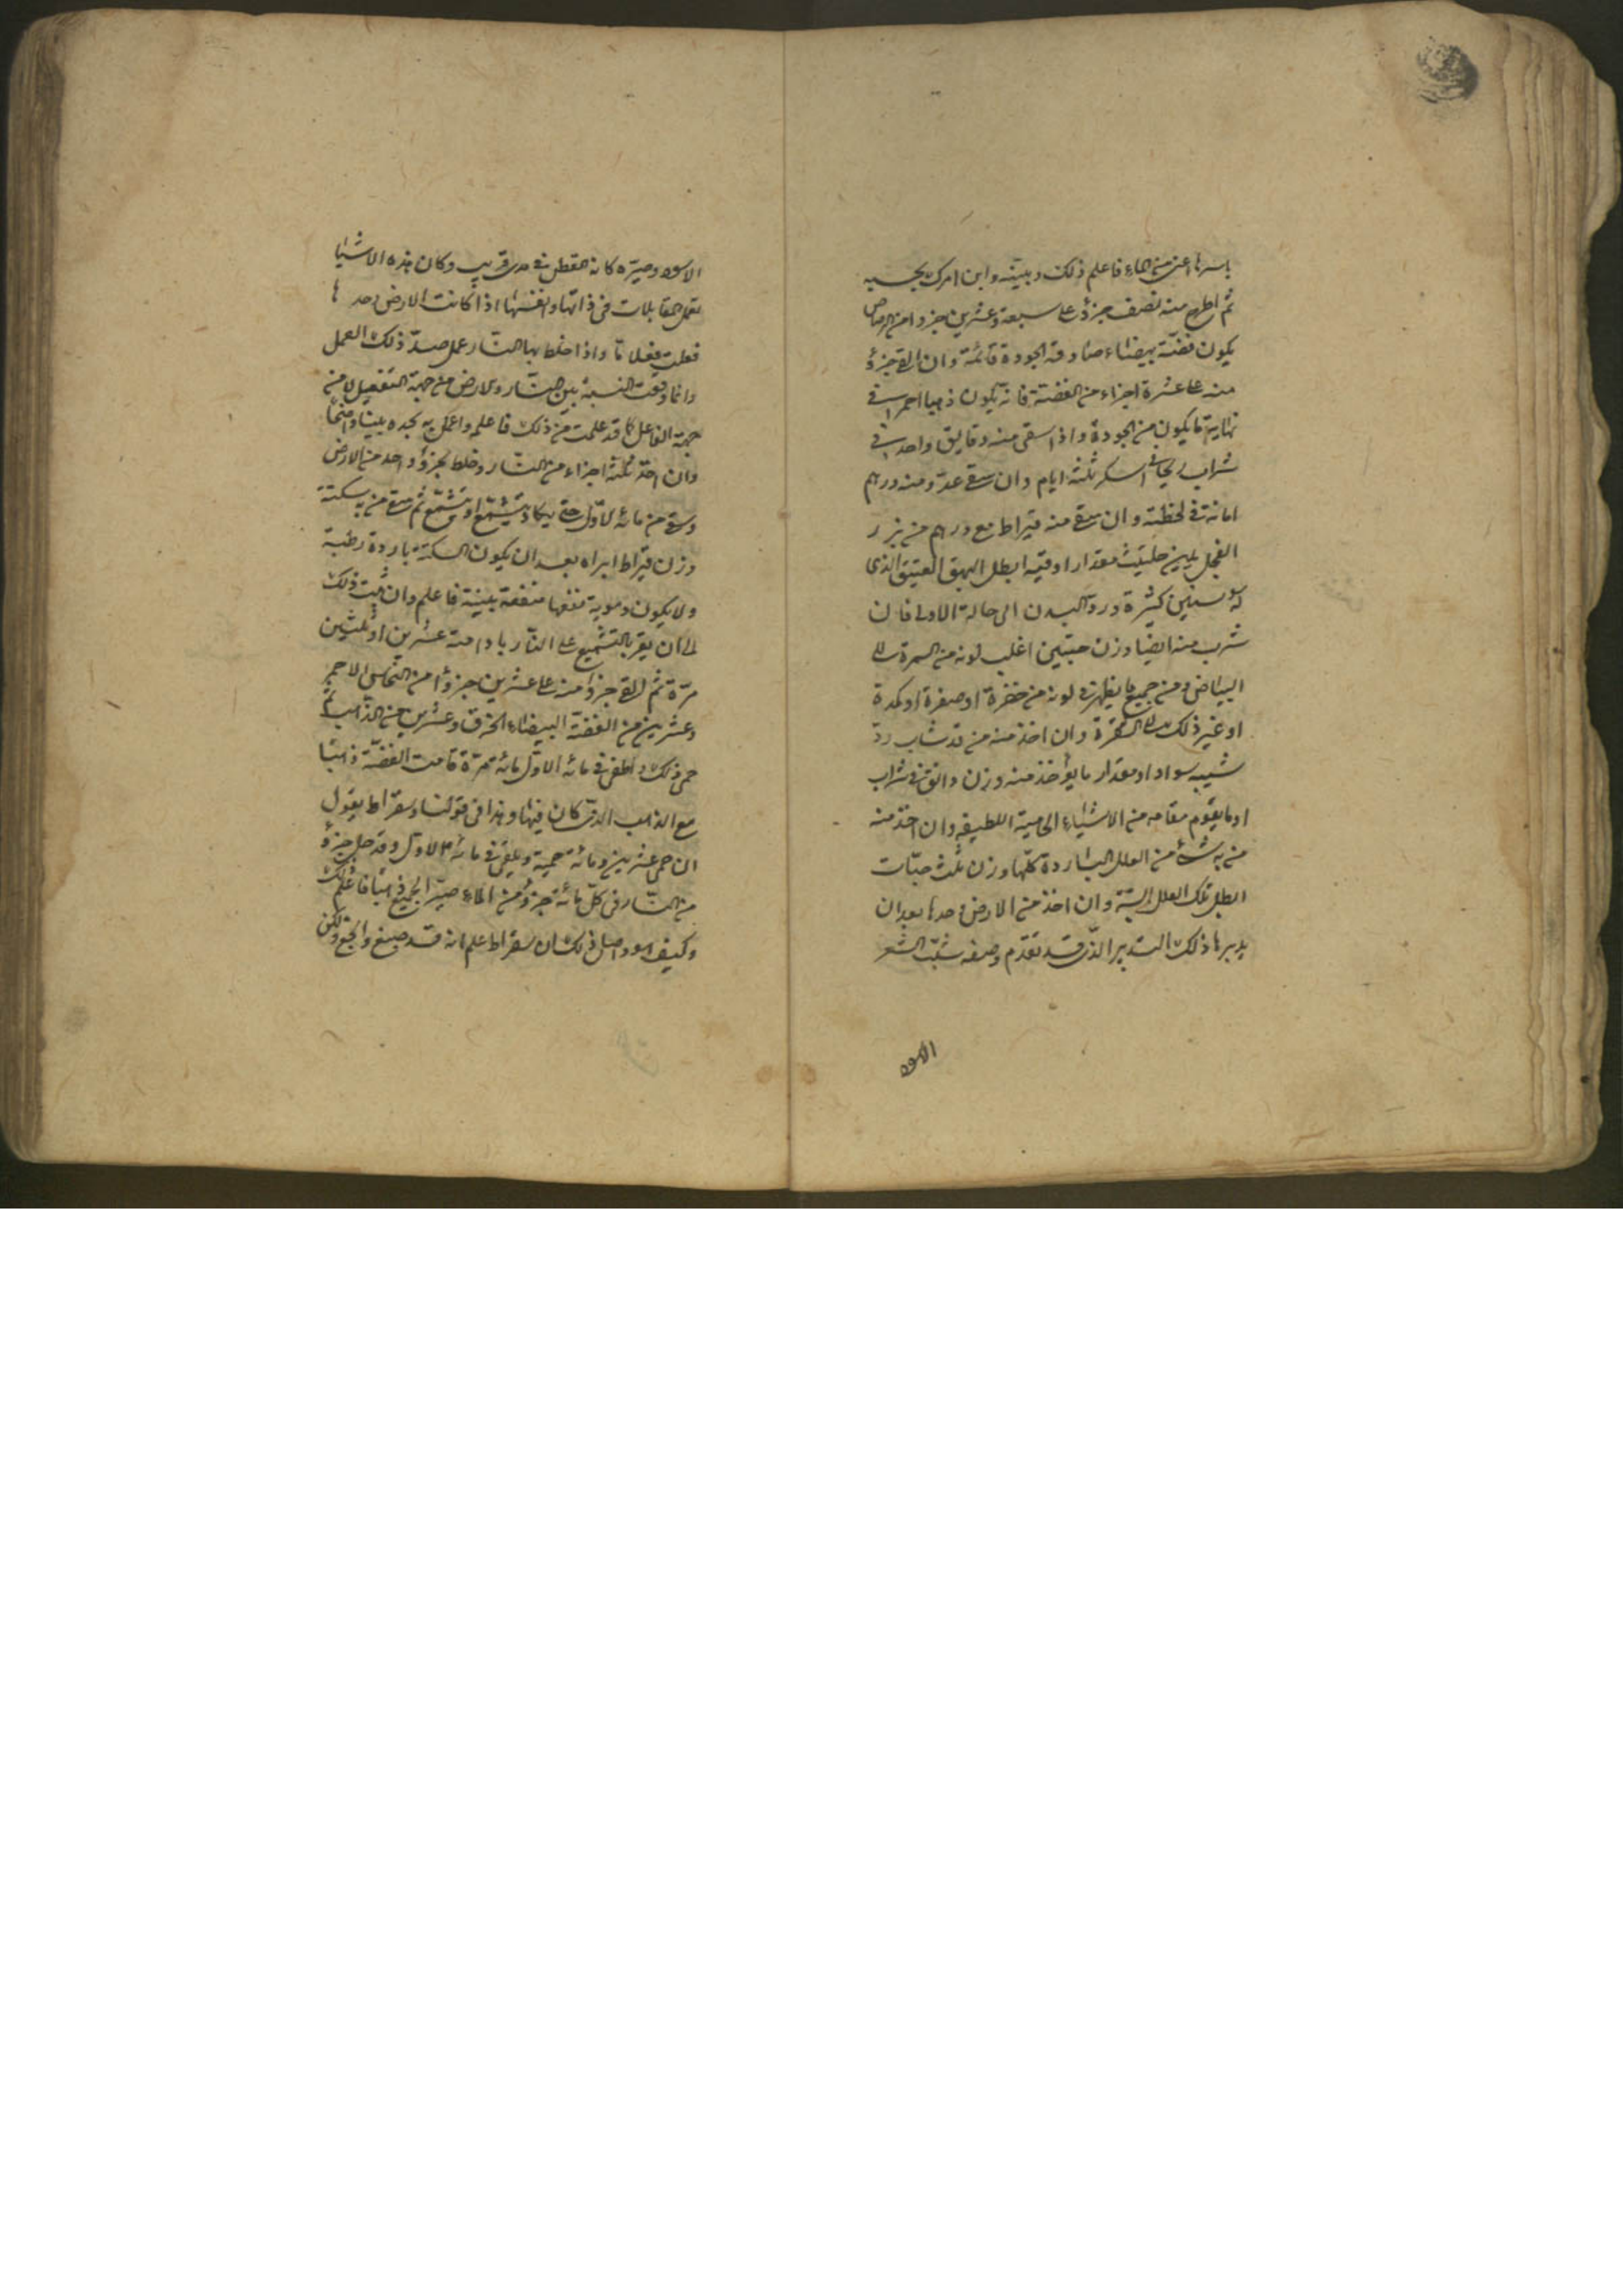 باسرها اعنى من الماء فاعلم ذلك وبينه وابن امرك بحسبه
ثم اطرح منه نصف جزؤ على سبعة وعشرين جزوا من الرصاص
يكون فضة بيضاء صادقة الجودة قائمة وان القى جزؤ
منه على عشرة اجزاء من الفضة فانه يكون ذهبا احمرا فى
نهاية ما يكون من الجودة واذا سقى منه دقايق واحد فى
شراب ريحانى اسكر ثلثة ايام وان سقى عدو منه درهم
اماته فى لحظته وان سقى منه قيراط مع درهم من بزر
الفجل بلبن حليب مقدار اوقية ابطل البهق العتيق الذى
له سنين كثيرة ورد البدن الى حالة الاولى فان
شرب منه ايضا وزن حبتين اغلب لونه من السمرة الى
البياض ومن جميع ما يظهر فى لونه من خضرة او صفرة او كمدة
او غير ذلك الى الشقرة وان اخذ منه من قد شاب ردّ
شيبه سوادا ومقدار ما يؤخذ منه وزن دانق فى شراب
او ما يقوم مقامه من الاشياء الحامية اللطيفه وان اخذ منه
من به شئ من العلل الباردة كلها وزن ثلث حبّات
ابطل تلك العلل البتة وان اخذ من الارض وحدها بعد ان
يدبرها ذلك التدبير الذى قد تقدّم وصفه شبّب الشعر
الاسود
الاسود وصيّره كانه القطن فى مدى قريب وكان هذه الاشيا
تعمل المقابلات فى ذاتها وانفسها اذا كانت الارض وحدها
فعلت فعلا ما واذا خلط بها النار عمل ضدّ ذلك العمل
وانما وقعت النسبة بين النار والارض من جهة التفعيل لا من
جهة الفاعل كما قد علمت من ذلك فاعلمه واعمل به تجده بيّنا واضحا
وان اخذ ثلثة اجزاء من النار وخلط بجزؤ واحد من الارض
وسقى من مائه الاوّل حتى يكاد يتشمّع او يتشمّع ثم سقى من به سكتة
وزن قيراط ابراه بعد ان يكون السكتة باردة رطبة
ولا يكون دموية نفعها منفعة بينة فاعلم وان ثبت ذلك
الى ان يقر بالتشميع على النار بادامته عشرين او ثلثين
مرّة ثم القى جزؤا منه على عشرين جزؤا من النحاس الاحمر
وعشرين من الفضة البيضاء الحرق وعشرين من الذهب ثم
حمى ذلك واطفى فى مائه الاوّل مائة مرّة قامت الفضّة ذهبًا
مع الذهب الذى كان فيها وهذا فى قولنا وسقراط يقول
ان حمى عشرين ومائة حمية ويلقى فى مائه الاوّل وقد حلّ جزؤ
من النار فى كل مائة جزؤ من الماء صيّر الجميع ذهبًا فاعلم ذلك
وكيف هو واصل ذلك ان سقراط علم انه قد صبغ وانجع ولكن